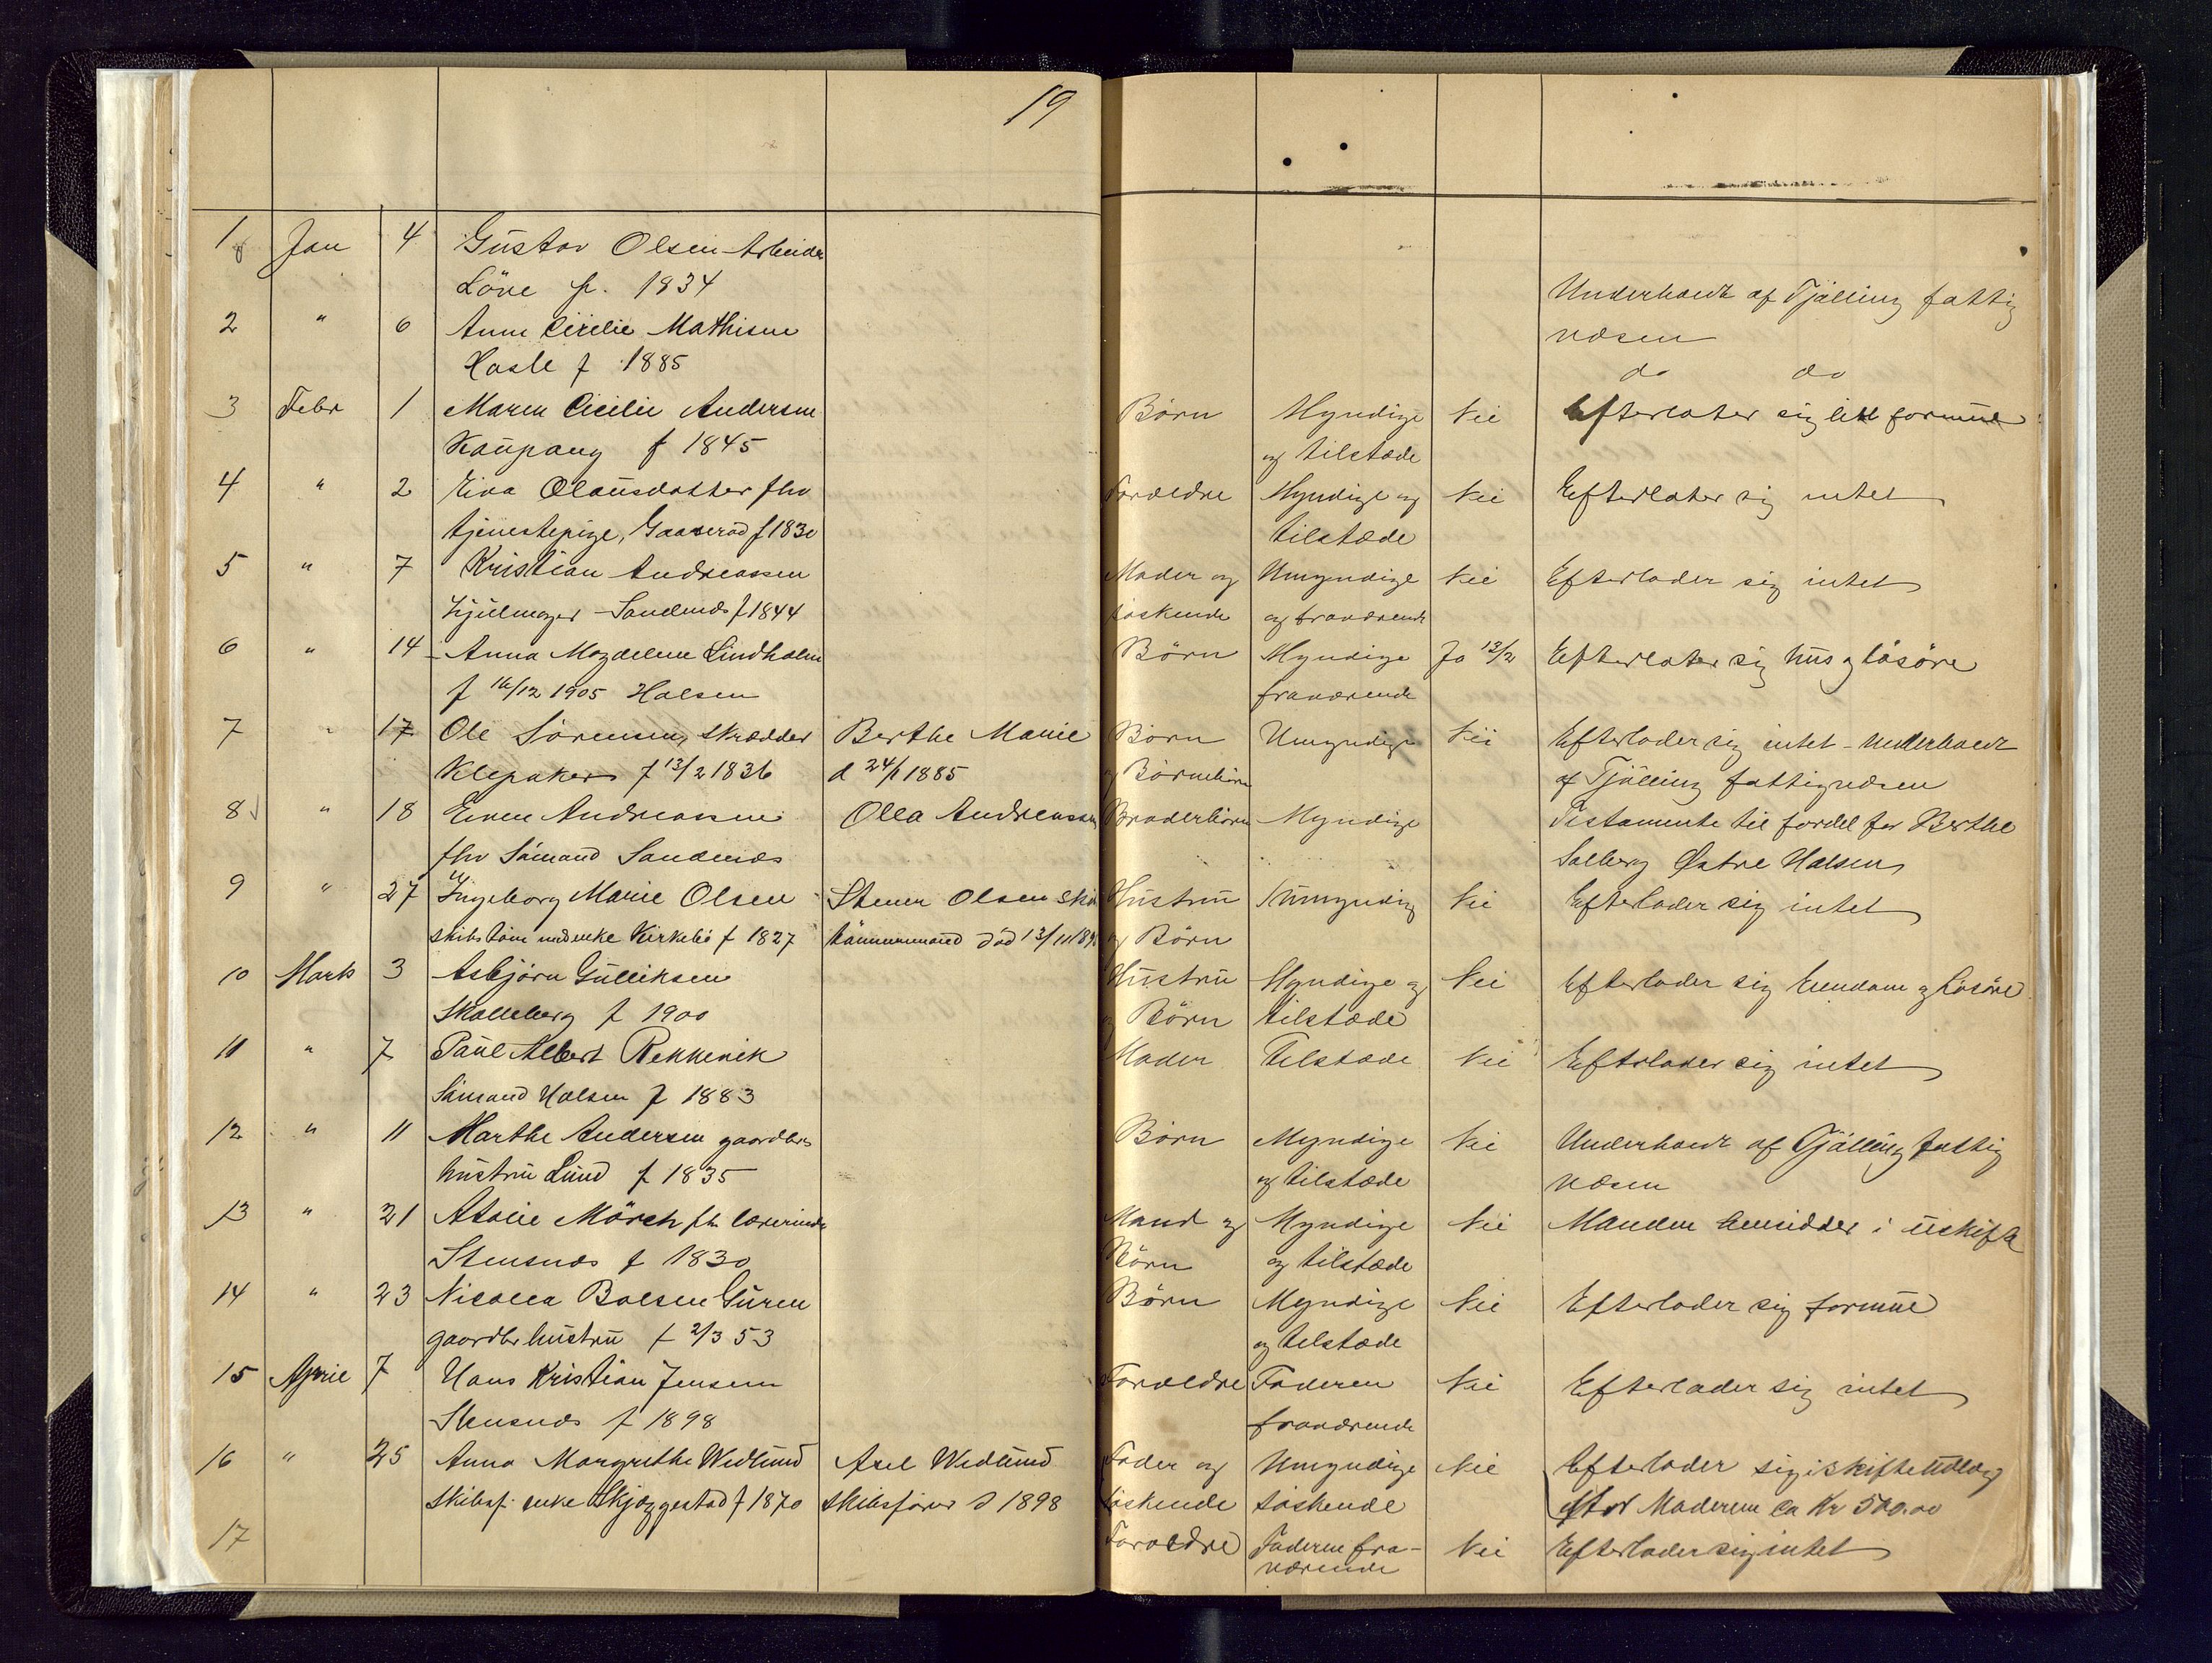 19
1 Jan 4 Gustav Olsen Arbeider
Löve f. 1834
Underholdt af Tjølling fattig
2 " 6 Anne Cecilie Mathisen
væsen
Hasle f 1885
do do
3 Febr 1 Maren Cicilie Andersen Börn Myndige Nei Efterlater sig litt formue
Kaupang f 1845 og tilstæde
4 " 2 Eva Olausdatter fhv Foreldre Myndige og Nei Efterlater sig intet
tjenestepige, Gaaserød f 1830 tilstæde
5 " 7 Kristian Andreassen Moder og Umyndige Nei Efterlader sig intet
Hjulmager Sandnæs f 1844 söskende og fraværende
6 " 14 Anna Magdelene Lindholm Börn Myndige Ja 12/2 Efterlater sig hus og lösöre
f 16/12 1905 Halsen fraværende
7 " 17 Ole Sörensen, skrædder Berthe Marie Börn Umyndige Nei Efterlader sig intet - Underholdt
Klepaker f 13/2 1836 d 24/1 1885 og Börnebörn af Tjölling fattigvæsen
8 " 18 Even Andreassen Olea Andreassen Broderbörn Myndige Testamente til fordel for Berthe
fhv Sömand Sandnæs Solberg Østre Halsen
9 " 27 Ingeborg Marie Olsen Stener Olsen Skibs Hustru Umyndig Nei Efterlader sig intet
skibstömmermandenke Kirkebö f 1827 tömmermand död 13/11 189 og Börn
10 Marts 3 Asbjörn Gulliksen Hustru Myndige og Nei Efterlader sig Eiendom og Lösöre
Skalleberg f 1900 og Börn tilstæde
11 " 7 Paul Albert Rekkevik Moder Tilstæde Nei Efterlader sig intet
Sömand Halsen f 1883
12 " 11 Marthe Andersen gaardbrs Börn Myndige Nei Underholdt af Tjölling fattig
hustru Lund f 1835 og tilstæde væsen
13 " 21 Atalie Mörch fhv lærerinde Mand og Myndige Nei Manden hensidder i uskifte
Stensnæs f 1830 Börn og tilstæde
14 " 23 Nicolea Bolsen Guren Börn Myndige Nei Efterlader sig formue
gaardbr hustru f 2/3 53 og tilstæde
15 April 7 Hans Kristian Jensen Foreldre Faderen Nei Efterlader sig intet
Stensnæs f 1898 fraværende
16 " 25 Anna Margrethe Wedlund Axel Wedlund Fader og Umyndige Nei Efterlader sig i skifteudlæg
skibsf. enke Skjæggestad f 1870 skibsförer d 1898 söskende söskende efter Moderen ca Kr 500.00
17 Foreldre Faderen fra- Nei Efterlader sig intet
værende